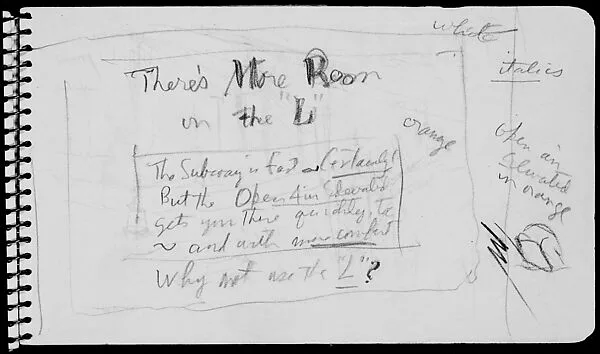 white
There's More Room
on the "L"
italics
orange
The Subway is Fast - Certainly!
But the Open Air Elevated
gets you there quickly, too
~ and with more comfort
Why not use the "L"?
open air
Elevated
in orange